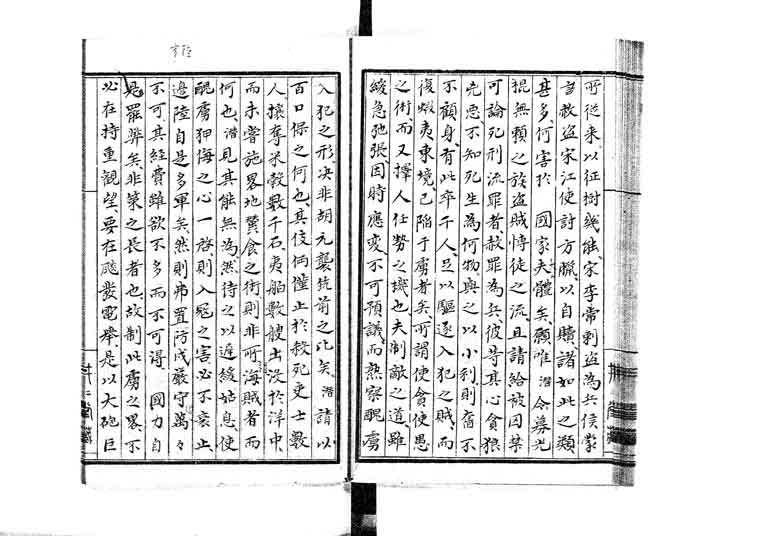 所従来、以征樹幾能、家李常剿盗為兵、侯蒙
言赦盗宋江使討方臘、以自贖、諸如此之類
甚多、何害於　國家大體矣、願唯潜令募光
棍無頼之族、盗賊博徒之流、且請給被囚某
可論死刑流罪者、赦罪為兵、彼等其心貪狼
兇悪不知死生為何物、與之以小利則奮不
不顧身、有此卒千人、足以駆逐入犯之賊、而
復蝦夷東境已陥于虜者矣、所謂使貪使愚
之術、而又擇人任勢之機也、夫制敵之道、雖
緩急弛張因時應変不可預議、而熟察醜虜
入犯之形、决非胡元襲筑前之比矣、潜請以
百口保之何也、其伎倆僅止於殺死吏士数
人攘奪米穀数千石、夷舶数艘出没於洋中、
而未嘗施畧地糞食之術、則非所海賊者而
何也、潜見其能無為、然待之以遅緩姑息、使
醜虜狎侮之心一啓、則入冦之害必不衰止、
邉陸自是多軍矣、然則弗置防戍嚴守萬々
不可、其経費雖欲不多而不可得、國力自
是罷弊矣、非策之長者也、故制此虜之畧、不
必在持重観望、要在颷發電舉、是以大砲巨